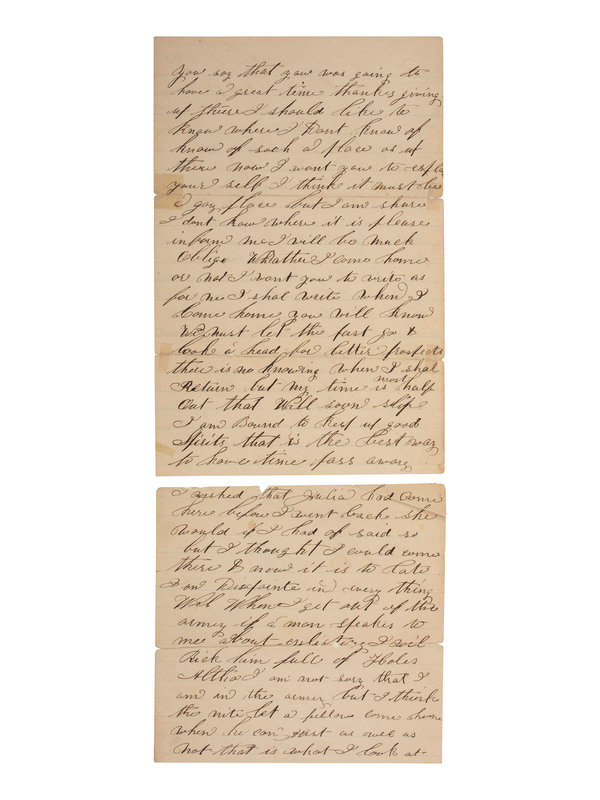 you say that you was going to
have a great time thanks giving
up there I should like to
know where I dont know of
know of such a place as up
there now I want you to expla
your self I think it must be
a gay place but I am shure
I dont know where it is please
inform me I will be much
Oblige Wheather I come home
or not I want you to write as
for me I shal write when I
Come home you will know
We must let the past go &
look a head for better prospects
there is no knowing when I shal
Return but my time is most half
Out that Will soon slip
I am Bound to keep up good
Spirits that is the best way
to have time pass away
I wished that Julia had Come
here before I went back she
would if I had of said so
but I thought I could come
there & now it is to late
I am Disapointe in every thing
Wel When I get out of the
army if a man speakes to
me about enlisting I wil
Kick him full of Holes
Altho I am not sory that I
am in the army but I think
the mite let a fellow come home
when he can just as well as
not that is what I look at